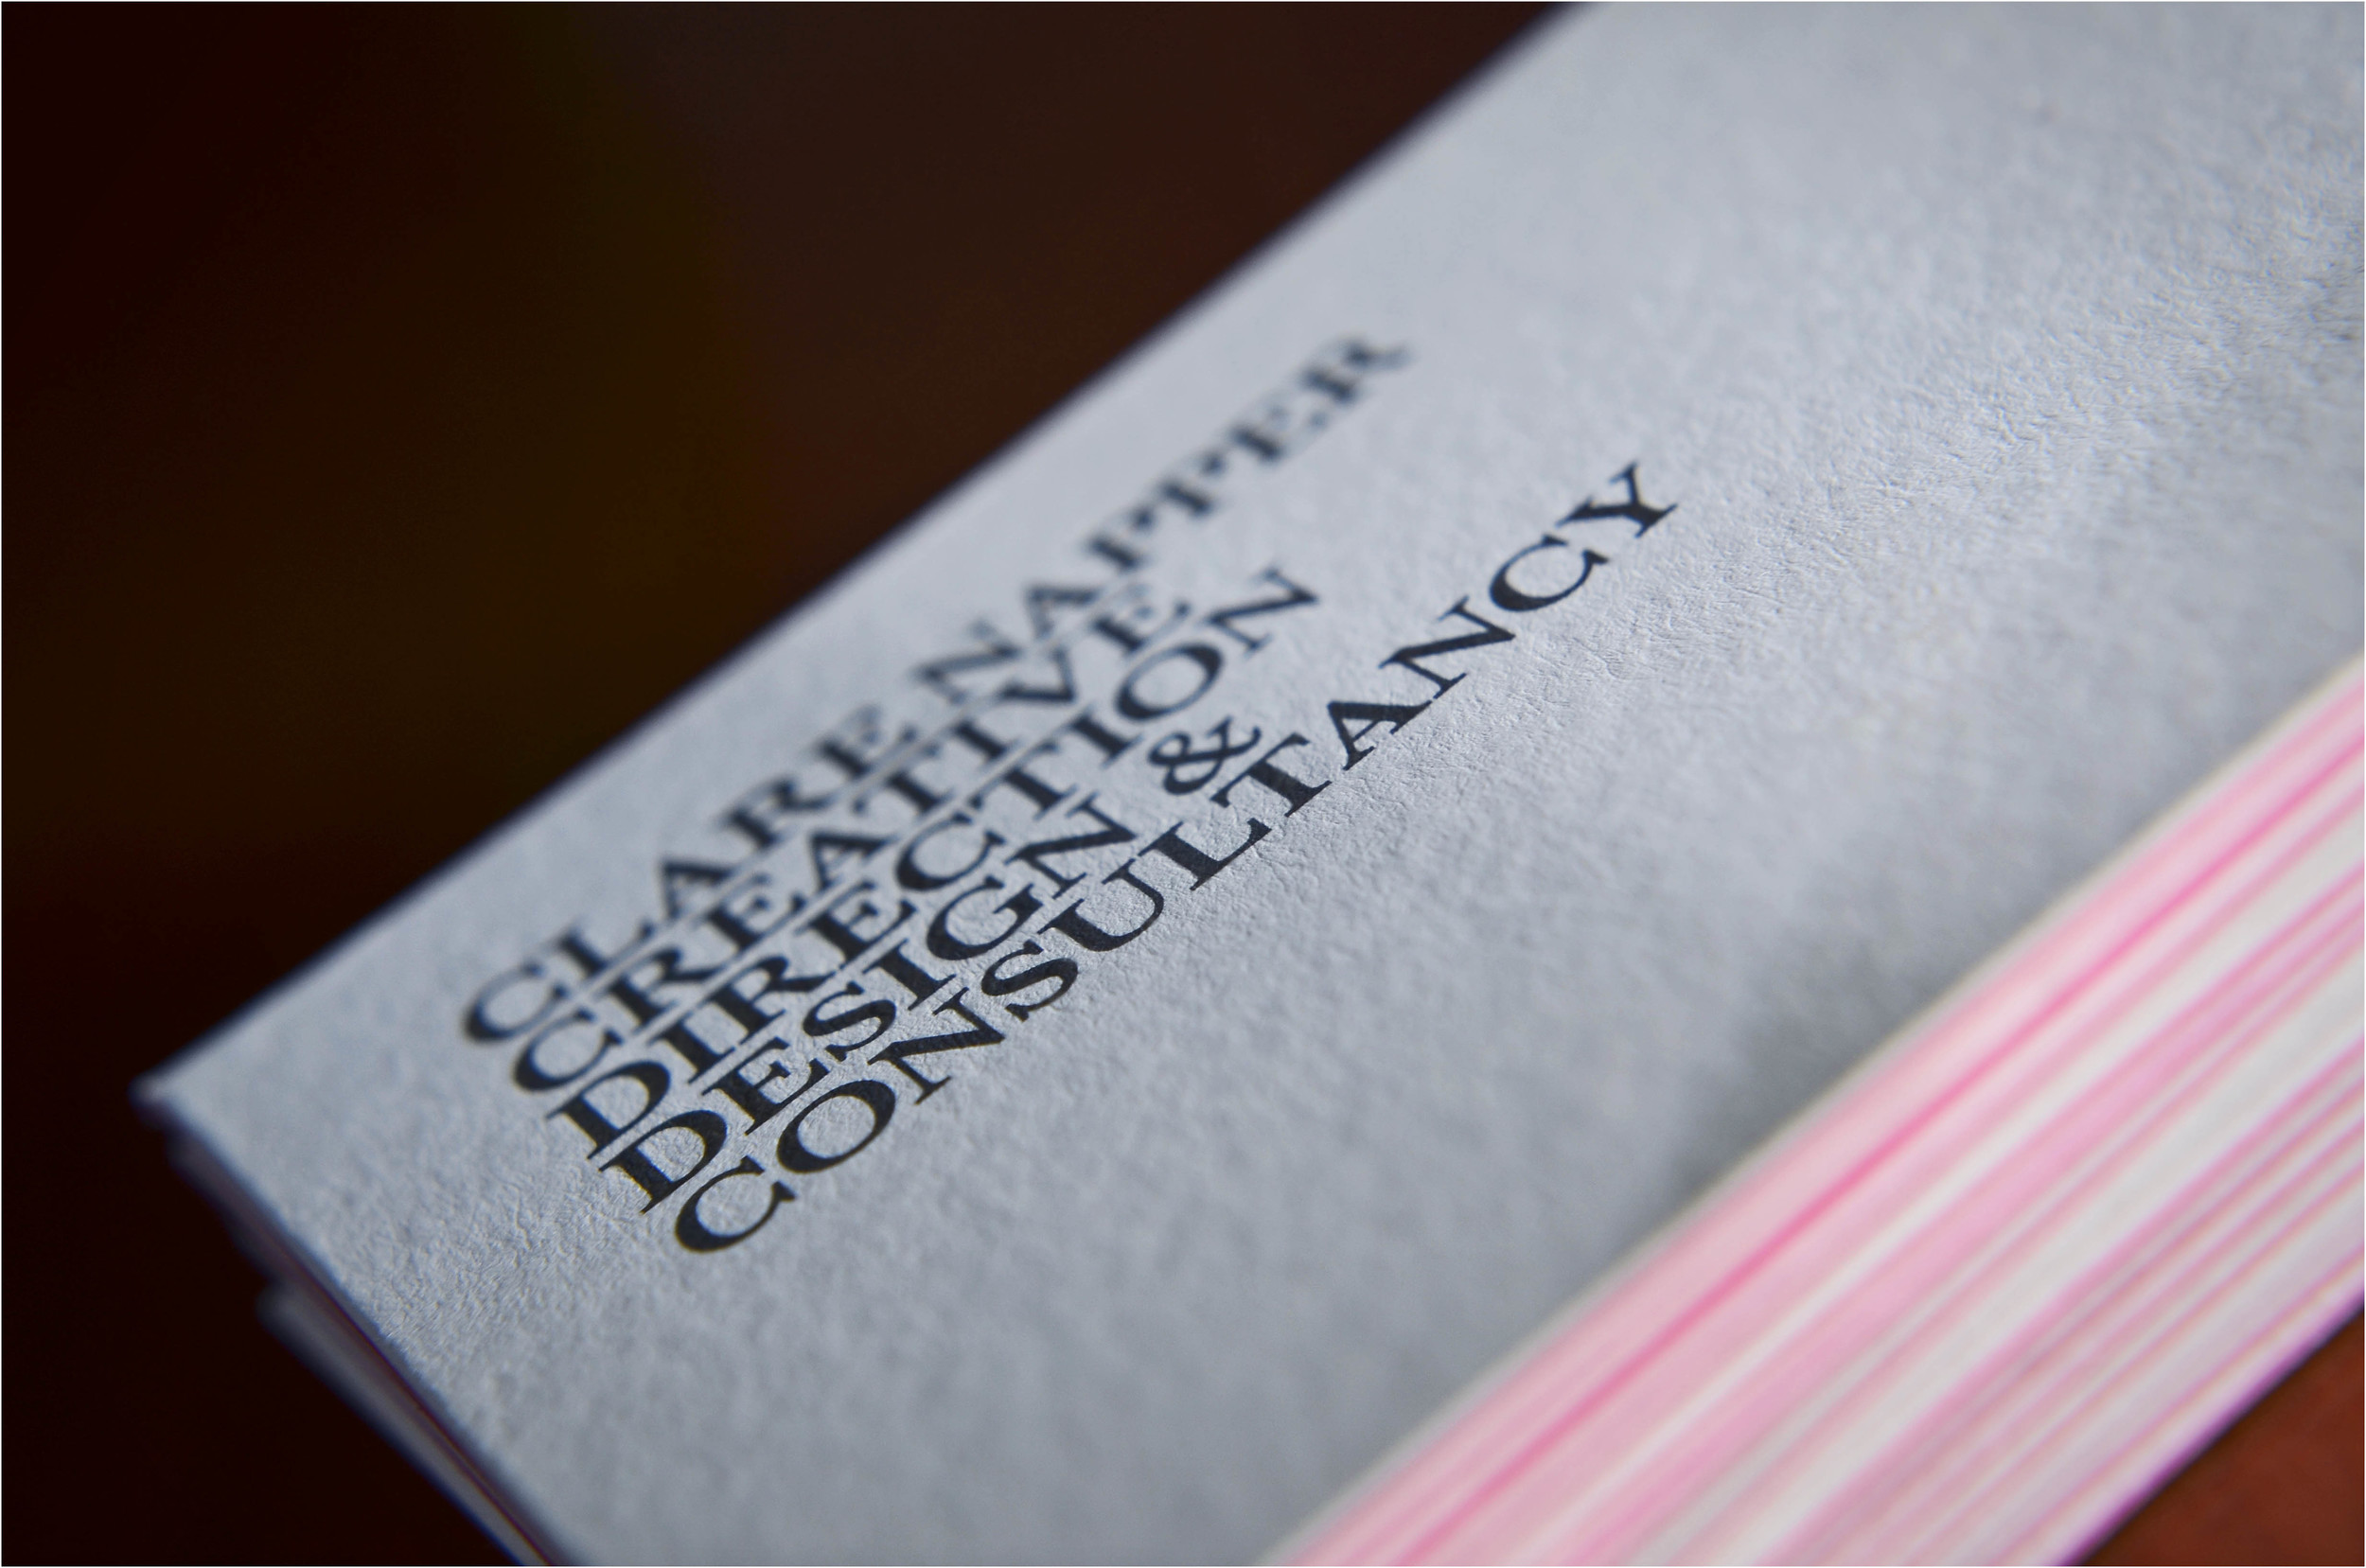 CLARE NAPPER
CREATIVE
DIRECTION
DESIGN &
CONSULTANCY